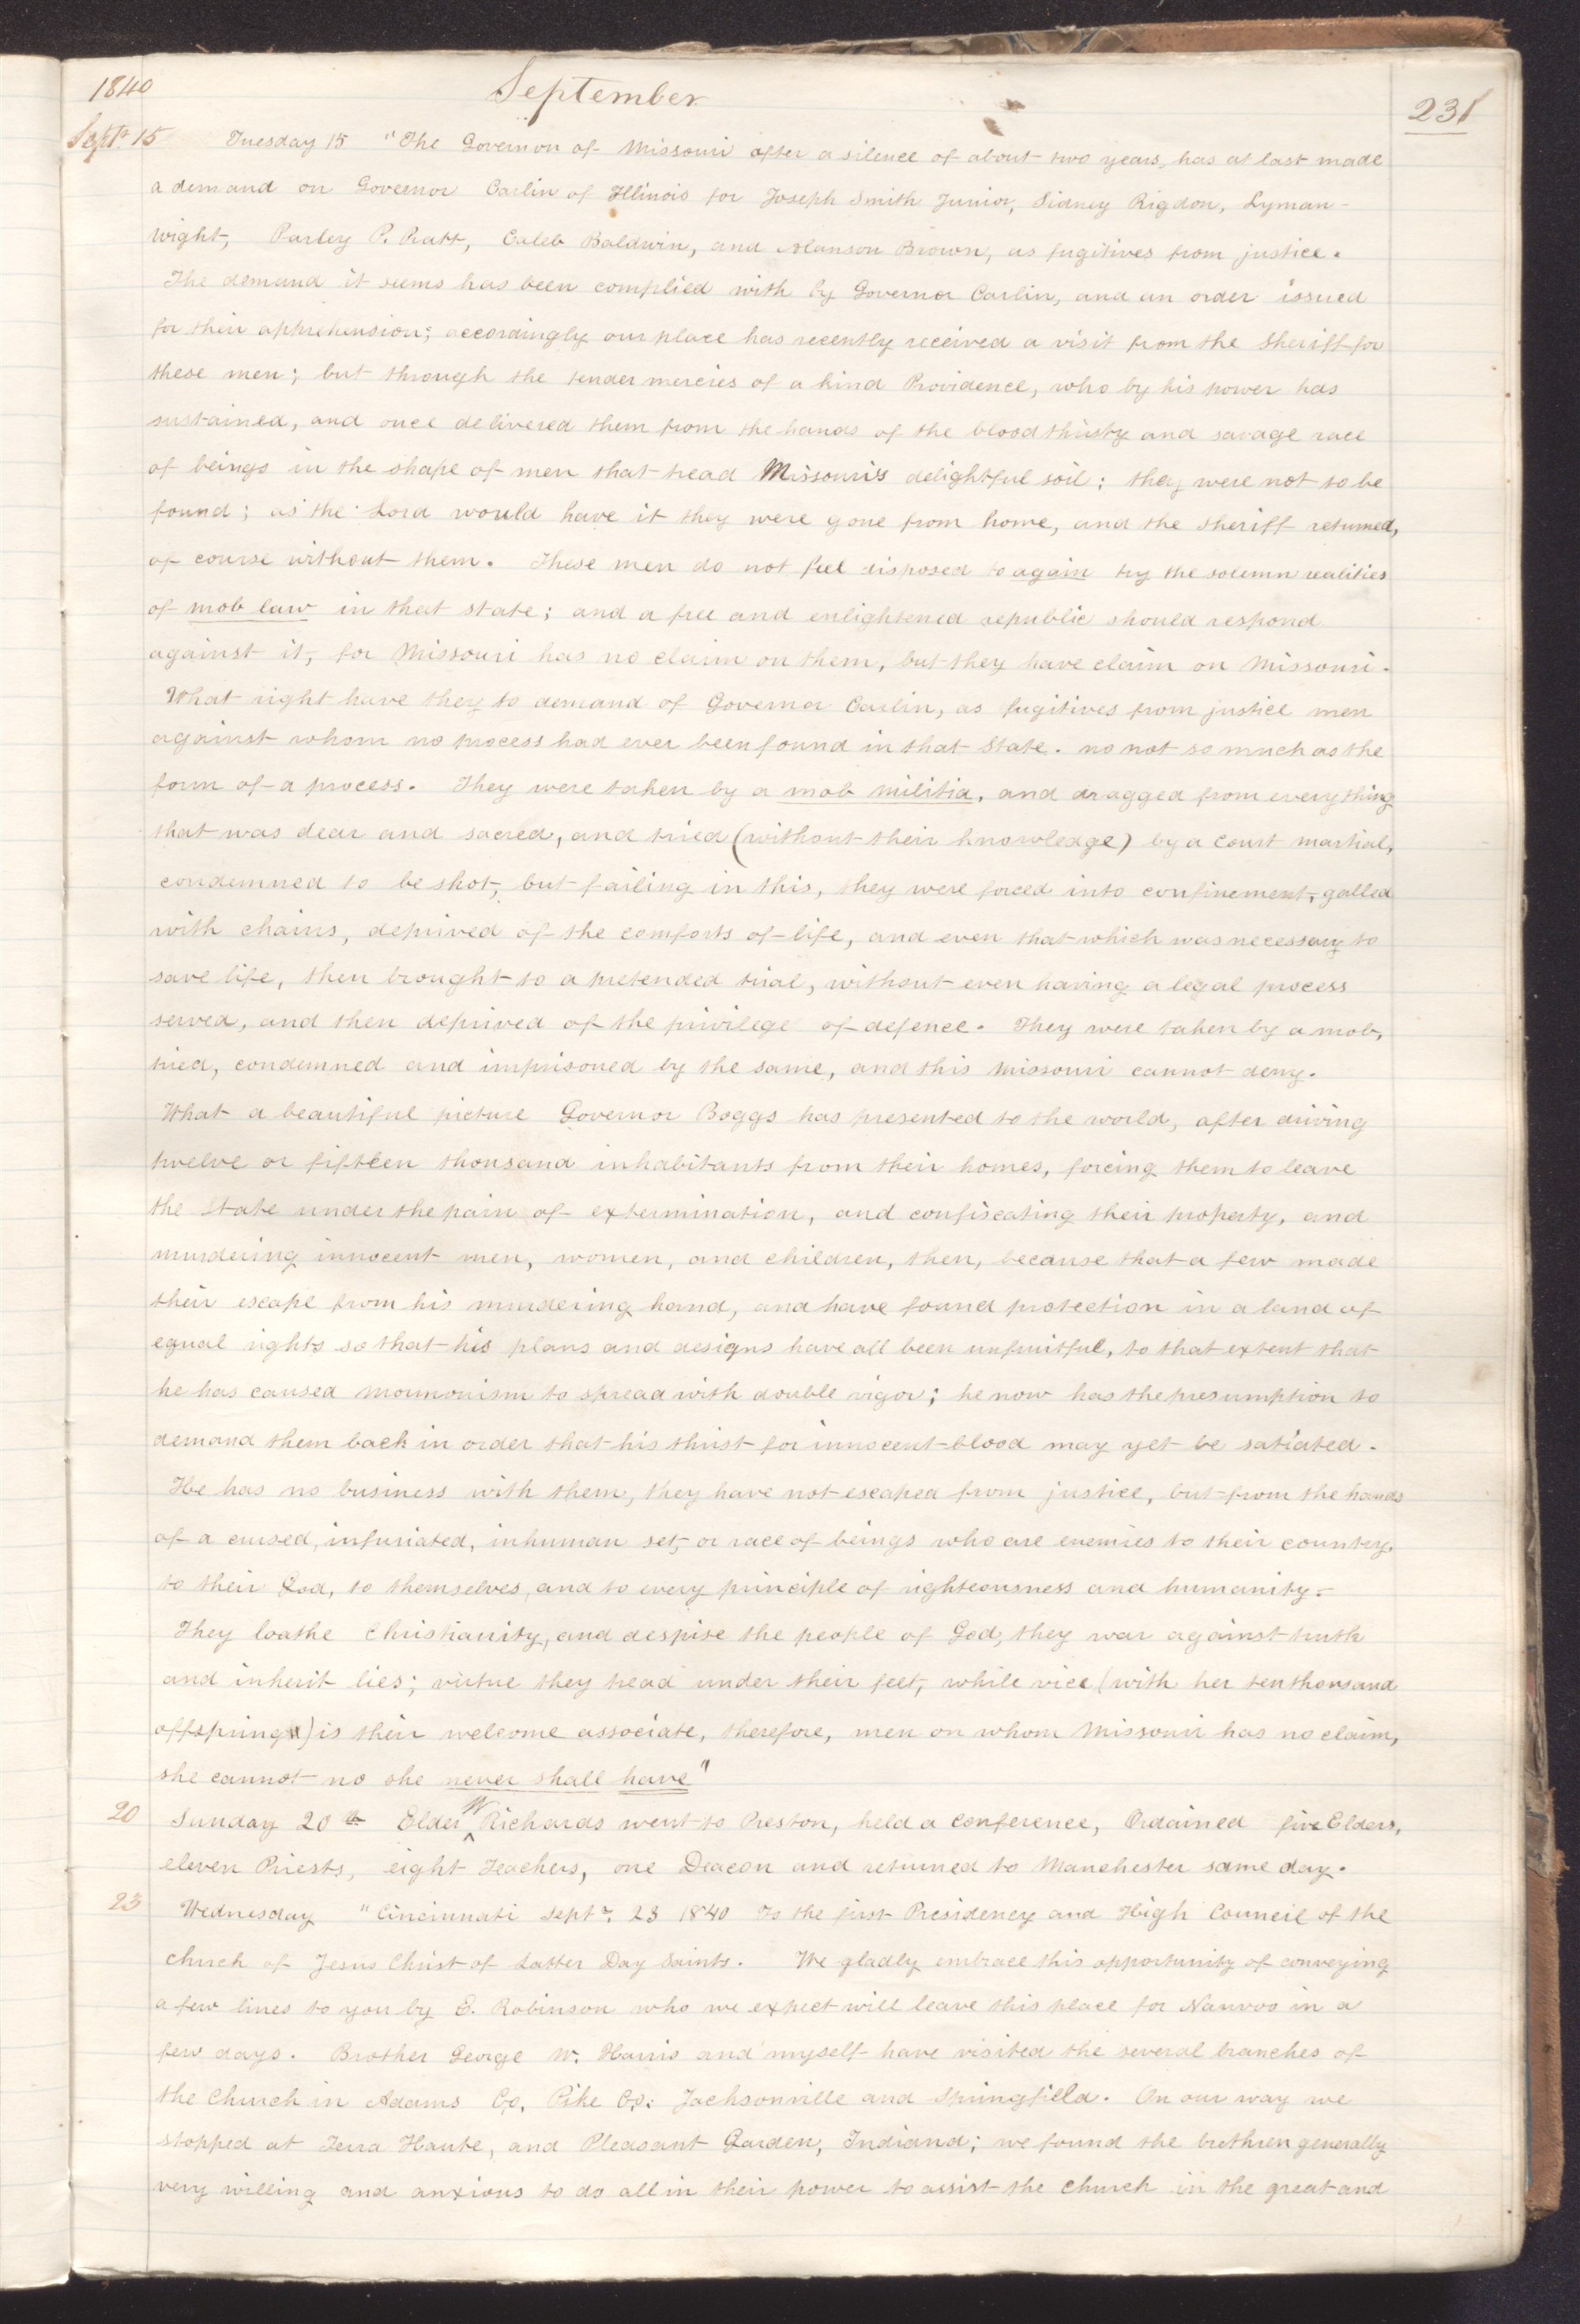 1840
September
231
Sept. 15
Tuesday 15 "The Governor of Missouri after a silence of about two years, has at last made
a demand on Goveenor Carlin of Illinois for Joseph Smith Junior, Sidney Rigdon, Lyman
Wight, Parley P. Pratt, Caleb Baldwin, and Alanson Brown, as fugitives from justice.
The demand it seems has been complied with by Governor Carlin, and an order issued
for their apprehension; accordingly our place has recently received a visit from the Sheriff for
these men; but through the tender mercies of a kind Providence, who by his power has
sustained, and once delivered them from the hands of the blood thirsty and savage race
of beings in the shape of men that tread Missouri's delightful soil; they were not to be
found; as the Lord would have it they were gone from home, and the Sheriff returned,
of course without them. These men do not feel disposed to again try the solemn realities
of mob law in that state; and a free and enlightened republic should respond
against it, for Missouri has no claim on them, but they have claim on Missouri.
What right have they to demand of Governor Carlin, as fugitives from justice men
against whom no process had ever been found in that State. no not so much as the
form of a process. They were taken by a mob militia, and dragged from every thing
that was dear and sacred, and tried (without their knowledge) by a Court martial,
condemned to be shot, but failing in this, they were forced into confinement, galled
with chains, deprived of the comforts of life, and even that which was necessary to
save life, then brought to a pretended trial, without even having a legal process
served, and then deprived of the privilege of defence. They were taken by a mob,
tried, condemned and imprisoned by the same, and this Missouri cannot deny.
What a beautiful picture Governor Boggs has presented to the world, after driving
twelve or fifteen thousand inhabitants from their homes, forcing them to leave
the State under the pain of extermination, and confiscating their property, and
murdering innocent men, women, and children, then, because that a few made
their escape from his murdering hand, and have found protection in a land of
equal rights so that his plans and designs have all been unfruitful, to that extent that
he has caused Mormonism to spread with double vigor; he now has the presumption to
demand them back in order that his thirst for innocent blood may yet be satiated.
He has no business with them, they have not escaped from justice, but from the hands
of a cursed, infuriated, inhuman set, or race of beings who are enemies to their country,
to their God, to themselves, and to every principle of righteousness and humanity.
They loathe Christianity, and despise the people of God, they war against truth
and inherit lies; virtue they tread under their feet, while vice (with her ten thousand
offspring) is their welcome associate, therefore, men on whom Missouri has no claim,
she cannot no she never shall have"
20
Sunday 20th Elder W Richards went to Preston, held a conference, Ordained five Elders,
eleven Priests, eight Teachers, one Deacon and returned to Manchester same day.
23
Wednesday "Cincinnati Septr. 23 1840 To the first Presidency and High Council of the
church of Jesus Christ of Latter Day Saints. We gladly embrace this opportunity of conveying
a few lines to you by E. Robinson who we expect will leave this place for Nauvoo in a
few days. Brother George W. Harris and myself have visited the several branches of
the Church in Adams Co, Pike Co. Jacksonville and Springfield. On our way we
stopped at Terra Haute, and Pleasant Garden, Indiana; we found the brethren generally
very willing and anxious to do all in their power to assist the church in the great and